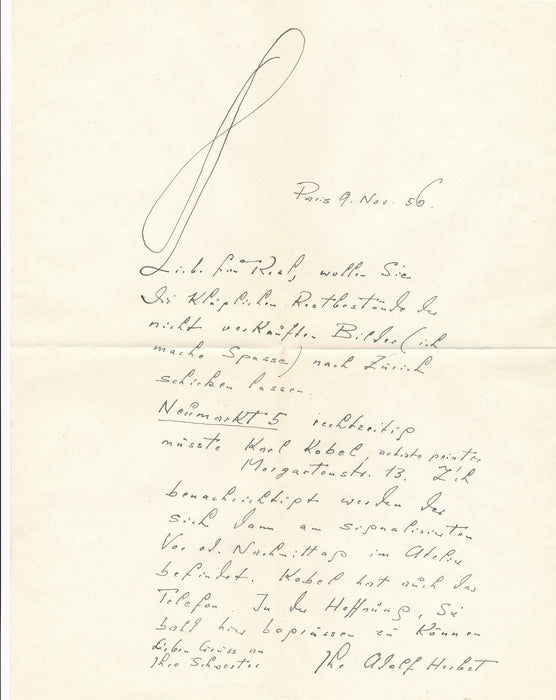 Paris 9. Nov. 56.
Liebe Frau Real, wollen Sie
die kläglichen Restbestände der
nicht verkauften Bilder (ich
mache Spasse) nach Zürich
schicken lassen.
Neumarkt 5 rechtzeitig
müsste Karl Kobel, artiste peintre
Morgartenstr. 13. Z'ch
benachrichtigt werden der
sich dann am signalisierten
Vor od. Nachmittag im Atelier
befindet. Kobel hat auch das
Telefon. In der Hoffnung, Sie
bald hier begrüssen zu können
Lieben Gruss an
Ihre Schwester Ihr Adolf Herbst